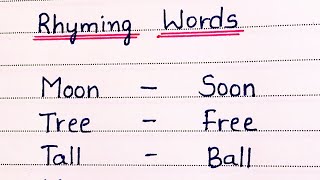 Rhyming Words
Moon - Soon
Tree - Free
Tall - Ball